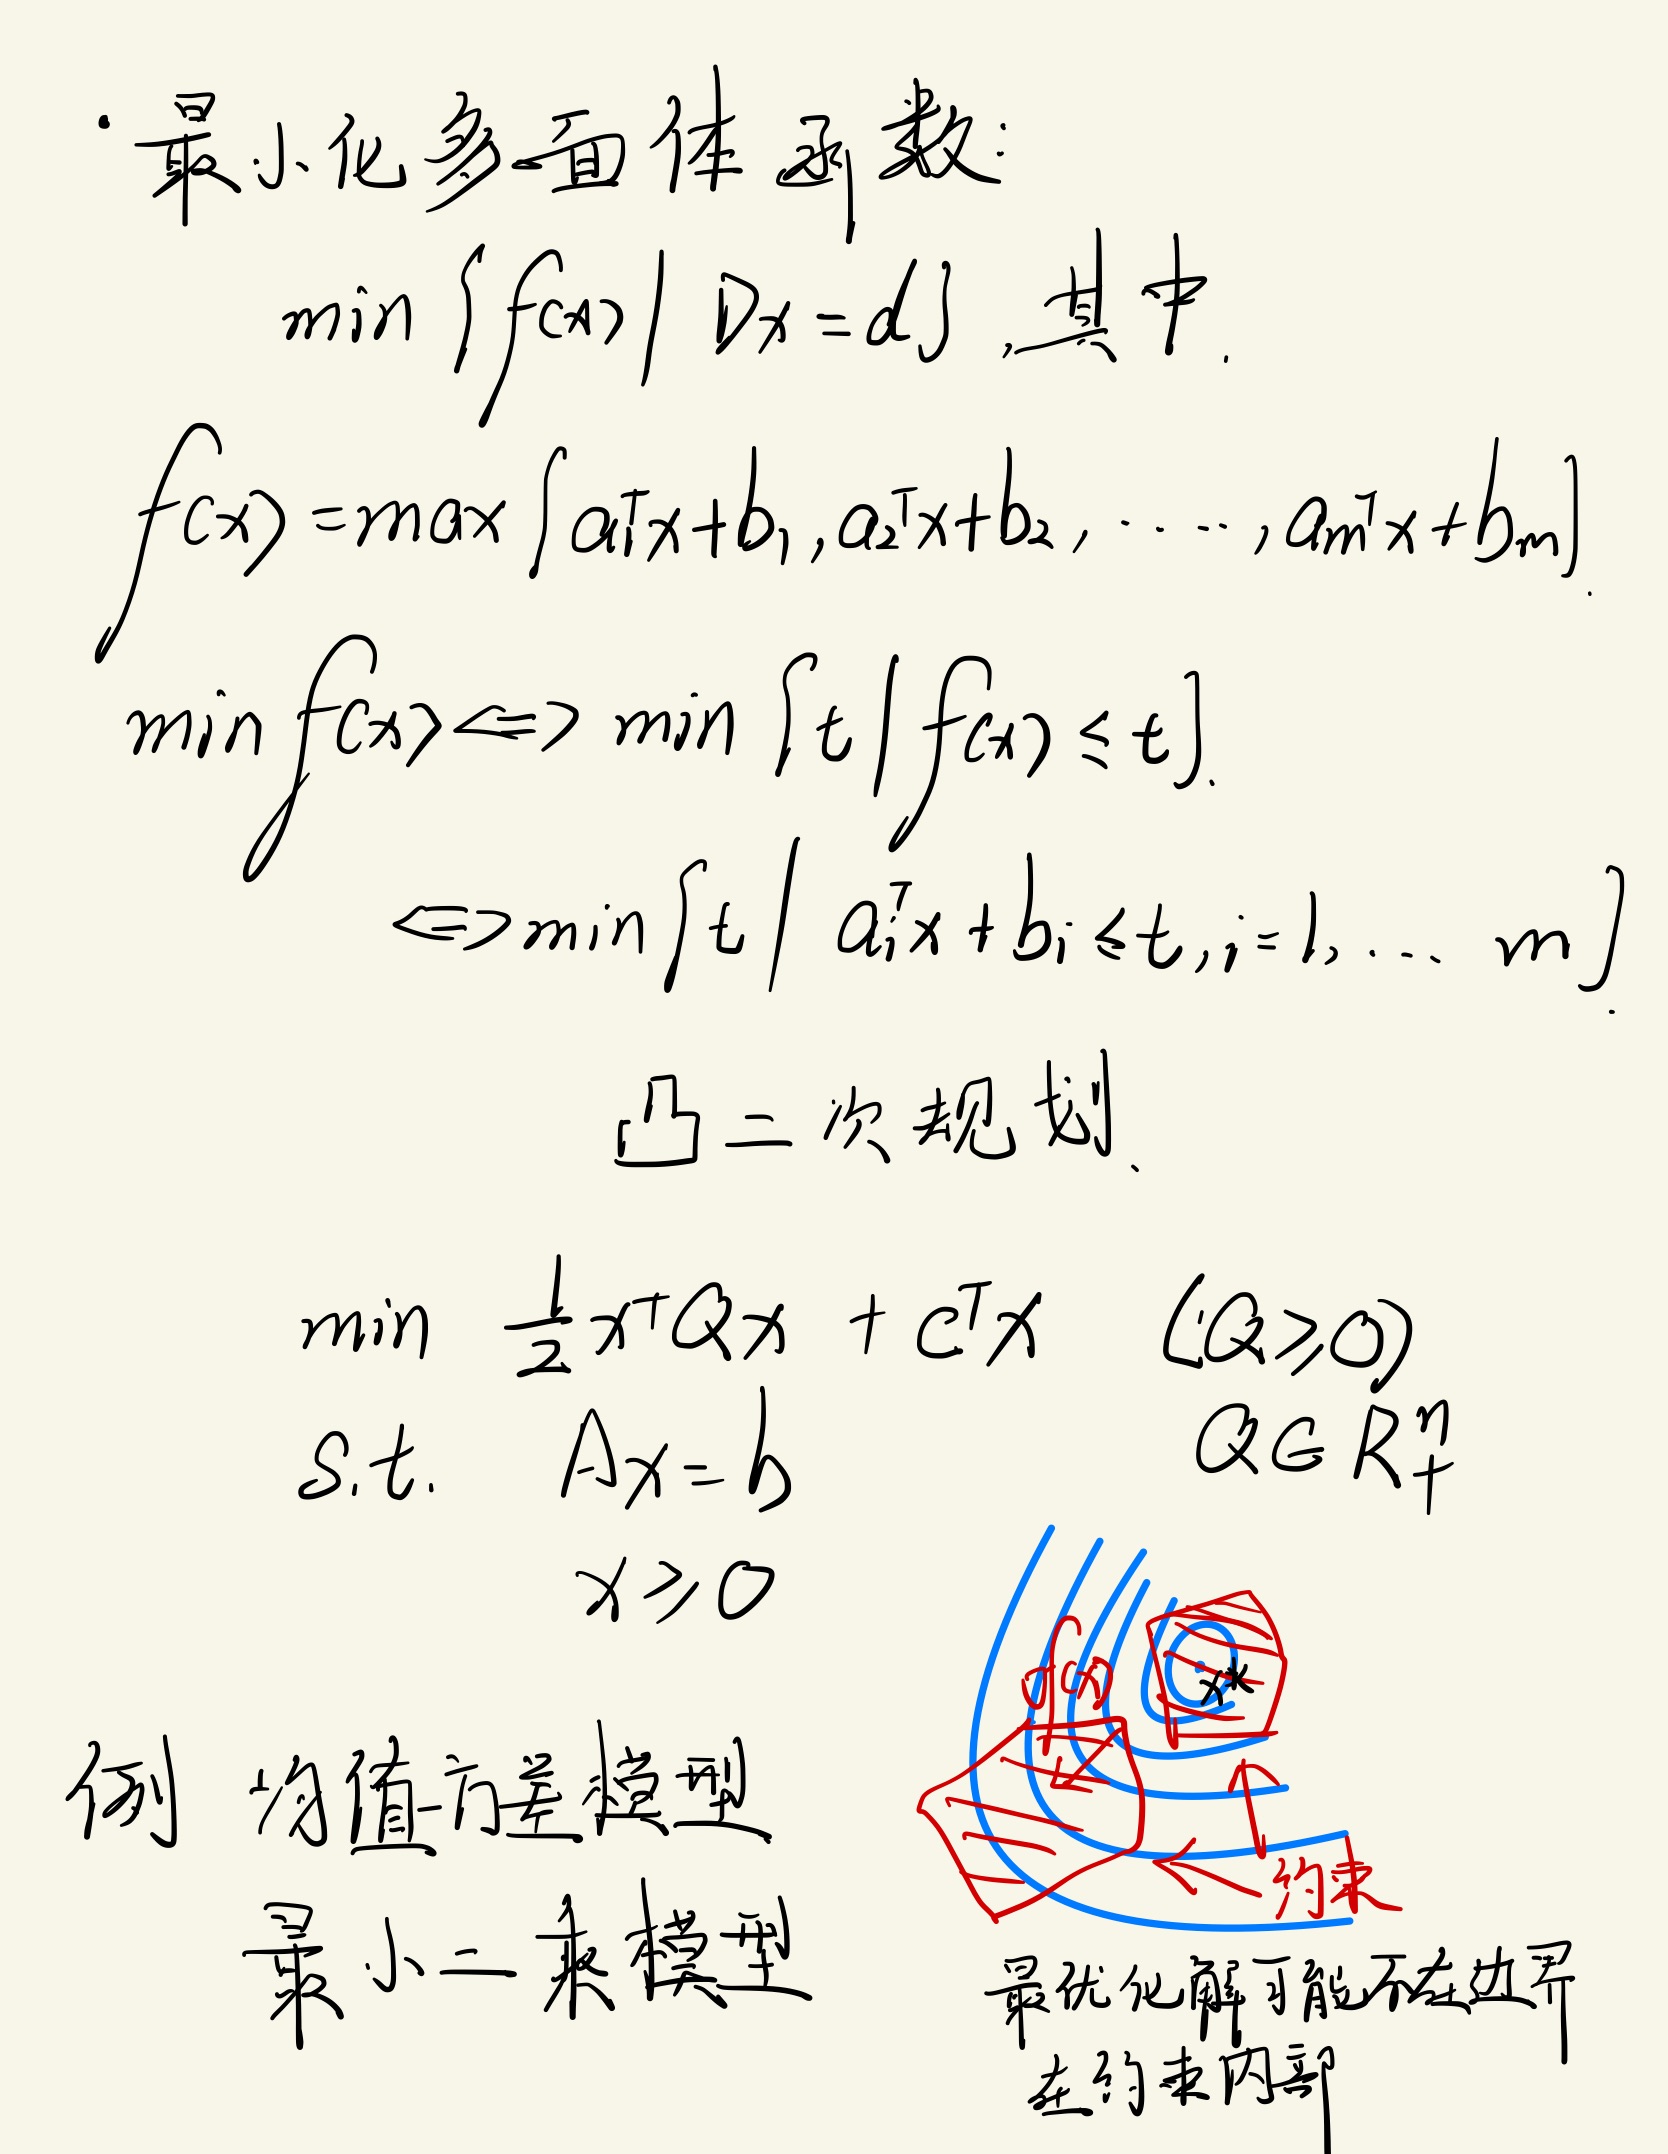 ·最小化多面体函数:
min {f(x) | Dx = d}, 其中.
f(x) = max {a₁ᵀx + b₁, a₂ᵀx + b₂, ·····, aₘᵀx + bₘ}.
min f(x) <=> min {t | f(x) ≤ t}.
<=> min {t | aᵢᵀx + bᵢ ≤ t, i = 1, ... m}.
凸二次规划.
min 1/2 xᵀQx + cᵀx (Q ≥ 0)
s.t. Ax = b Q ∈ R₊ⁿ
x ≥ 0
x*
f(x)
约束
例 均值-方差模型
最小二乘模型
最优化解可能不在边界
在约束内部